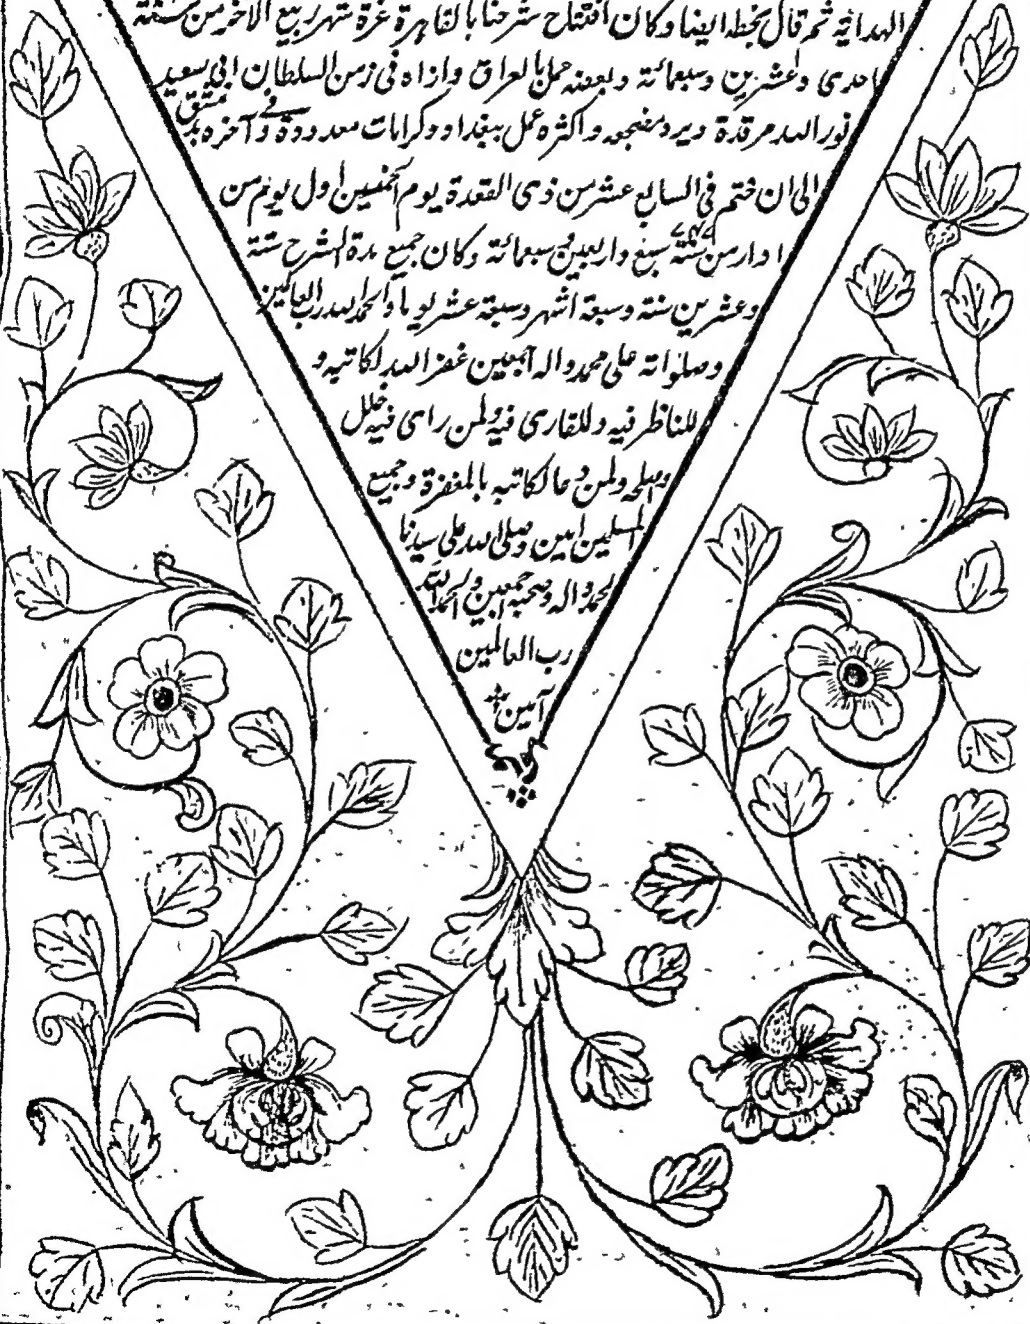 الهداية ثم قال بخطه ايضا وكان افتتاح شرحنا بالقاهرة غرة شهر ربيع الاخر من سنة
احدى وعشرين وسبعمائة وبعضه عمل بالعراق واراه فى زمن السلطان ابى سعيد
نور الله مرقدة وبرد مضجعه واكثره عمل ببغداد وكرات معدودة وآخره فى دمشق
الى ان ختم فى السابع عشر من ذى القعدة يوم الخميس اول يوم من
ادار من سنة سبع واربعين وسبعمائة وكان جميع مدة الشرح ستة
وعشرين سنة وسبعة اشهر وسبعة عشر يوما والحمد لله رب العالمين
وصلواته على محمد واله اجمعين غفر الله لكاتبه و
للناظر فيه وللقارى فيه ولمن راى فيه خلل
واصلحه ولمن دعا لكاتبه بالمغفرة وجميع
المسلمين امين وصلى الله على سيدنا
محمد واله وصحبه اجمعين والحمد لله
رب العالمين
آمين